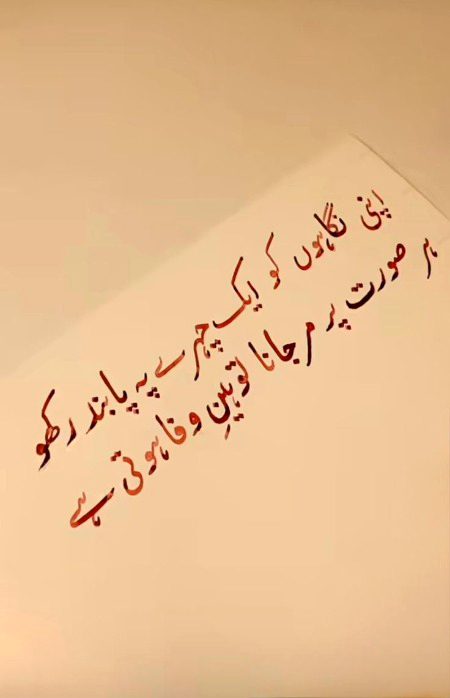 اپنی نگاہوں کو ایک چہرے پہ پابند رکھو
ہر صورت پر مر جانا توہینِ وفا ہوتی ہے